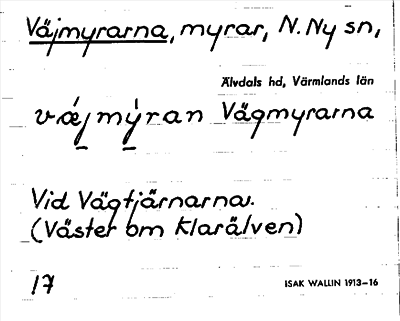 Väjmyrarna, myrar, N. Ny sn,
Älvdals hd, Värmlands län
væ´j mý ran Vägmyrarna
Vid Vägtjärnarna.
(Väster om Klarälven)
17
ISAK WALLIN 1913–16